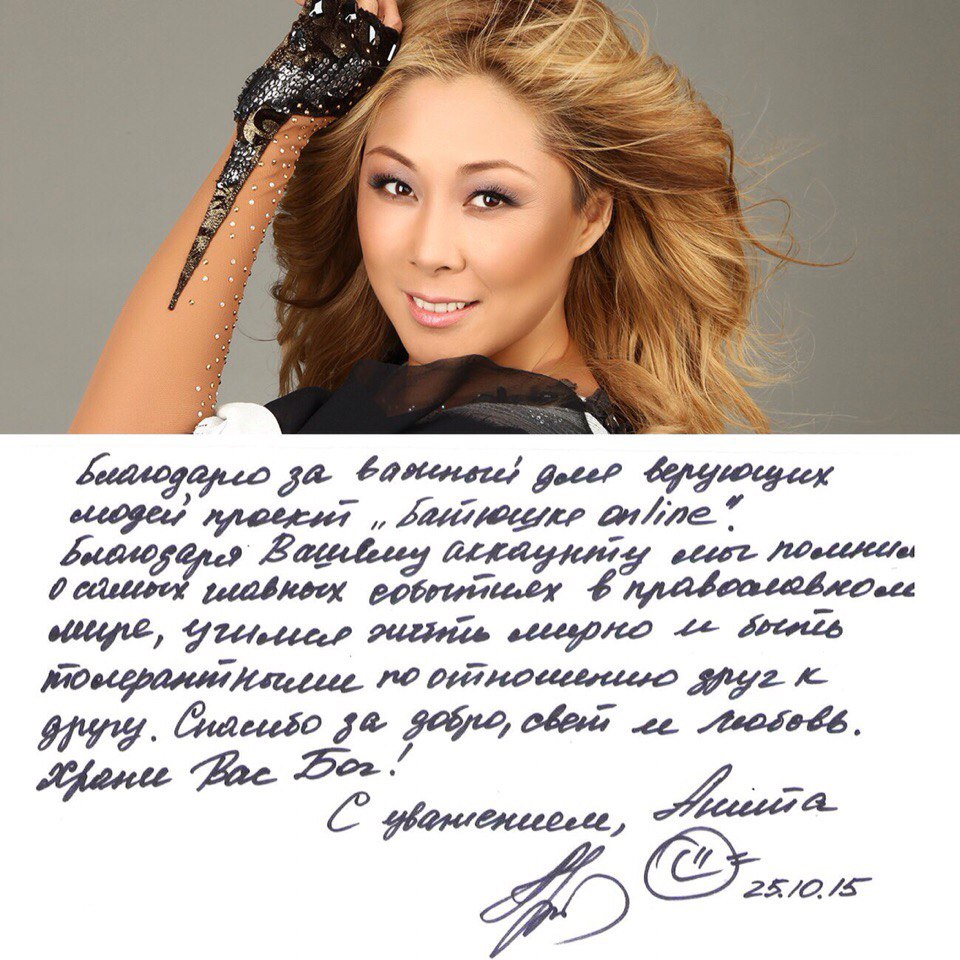 Благодарю за важный для верующих
людей проект „Батюшка online".
Благодаря Вашему аккаунту мы помним
о самых главных событиях в православном
мире, учимся жить мирно и быть
толерантными по отношению друг к
другу. Спасибо за добро, свет и любовь.
Храни Вас Бог!
С уважением, Анита
25.10.15